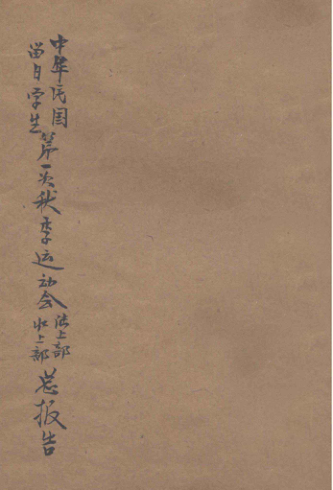 中华民国
留日学生
第一次秋季运动会
陆上部
水上部
总报告